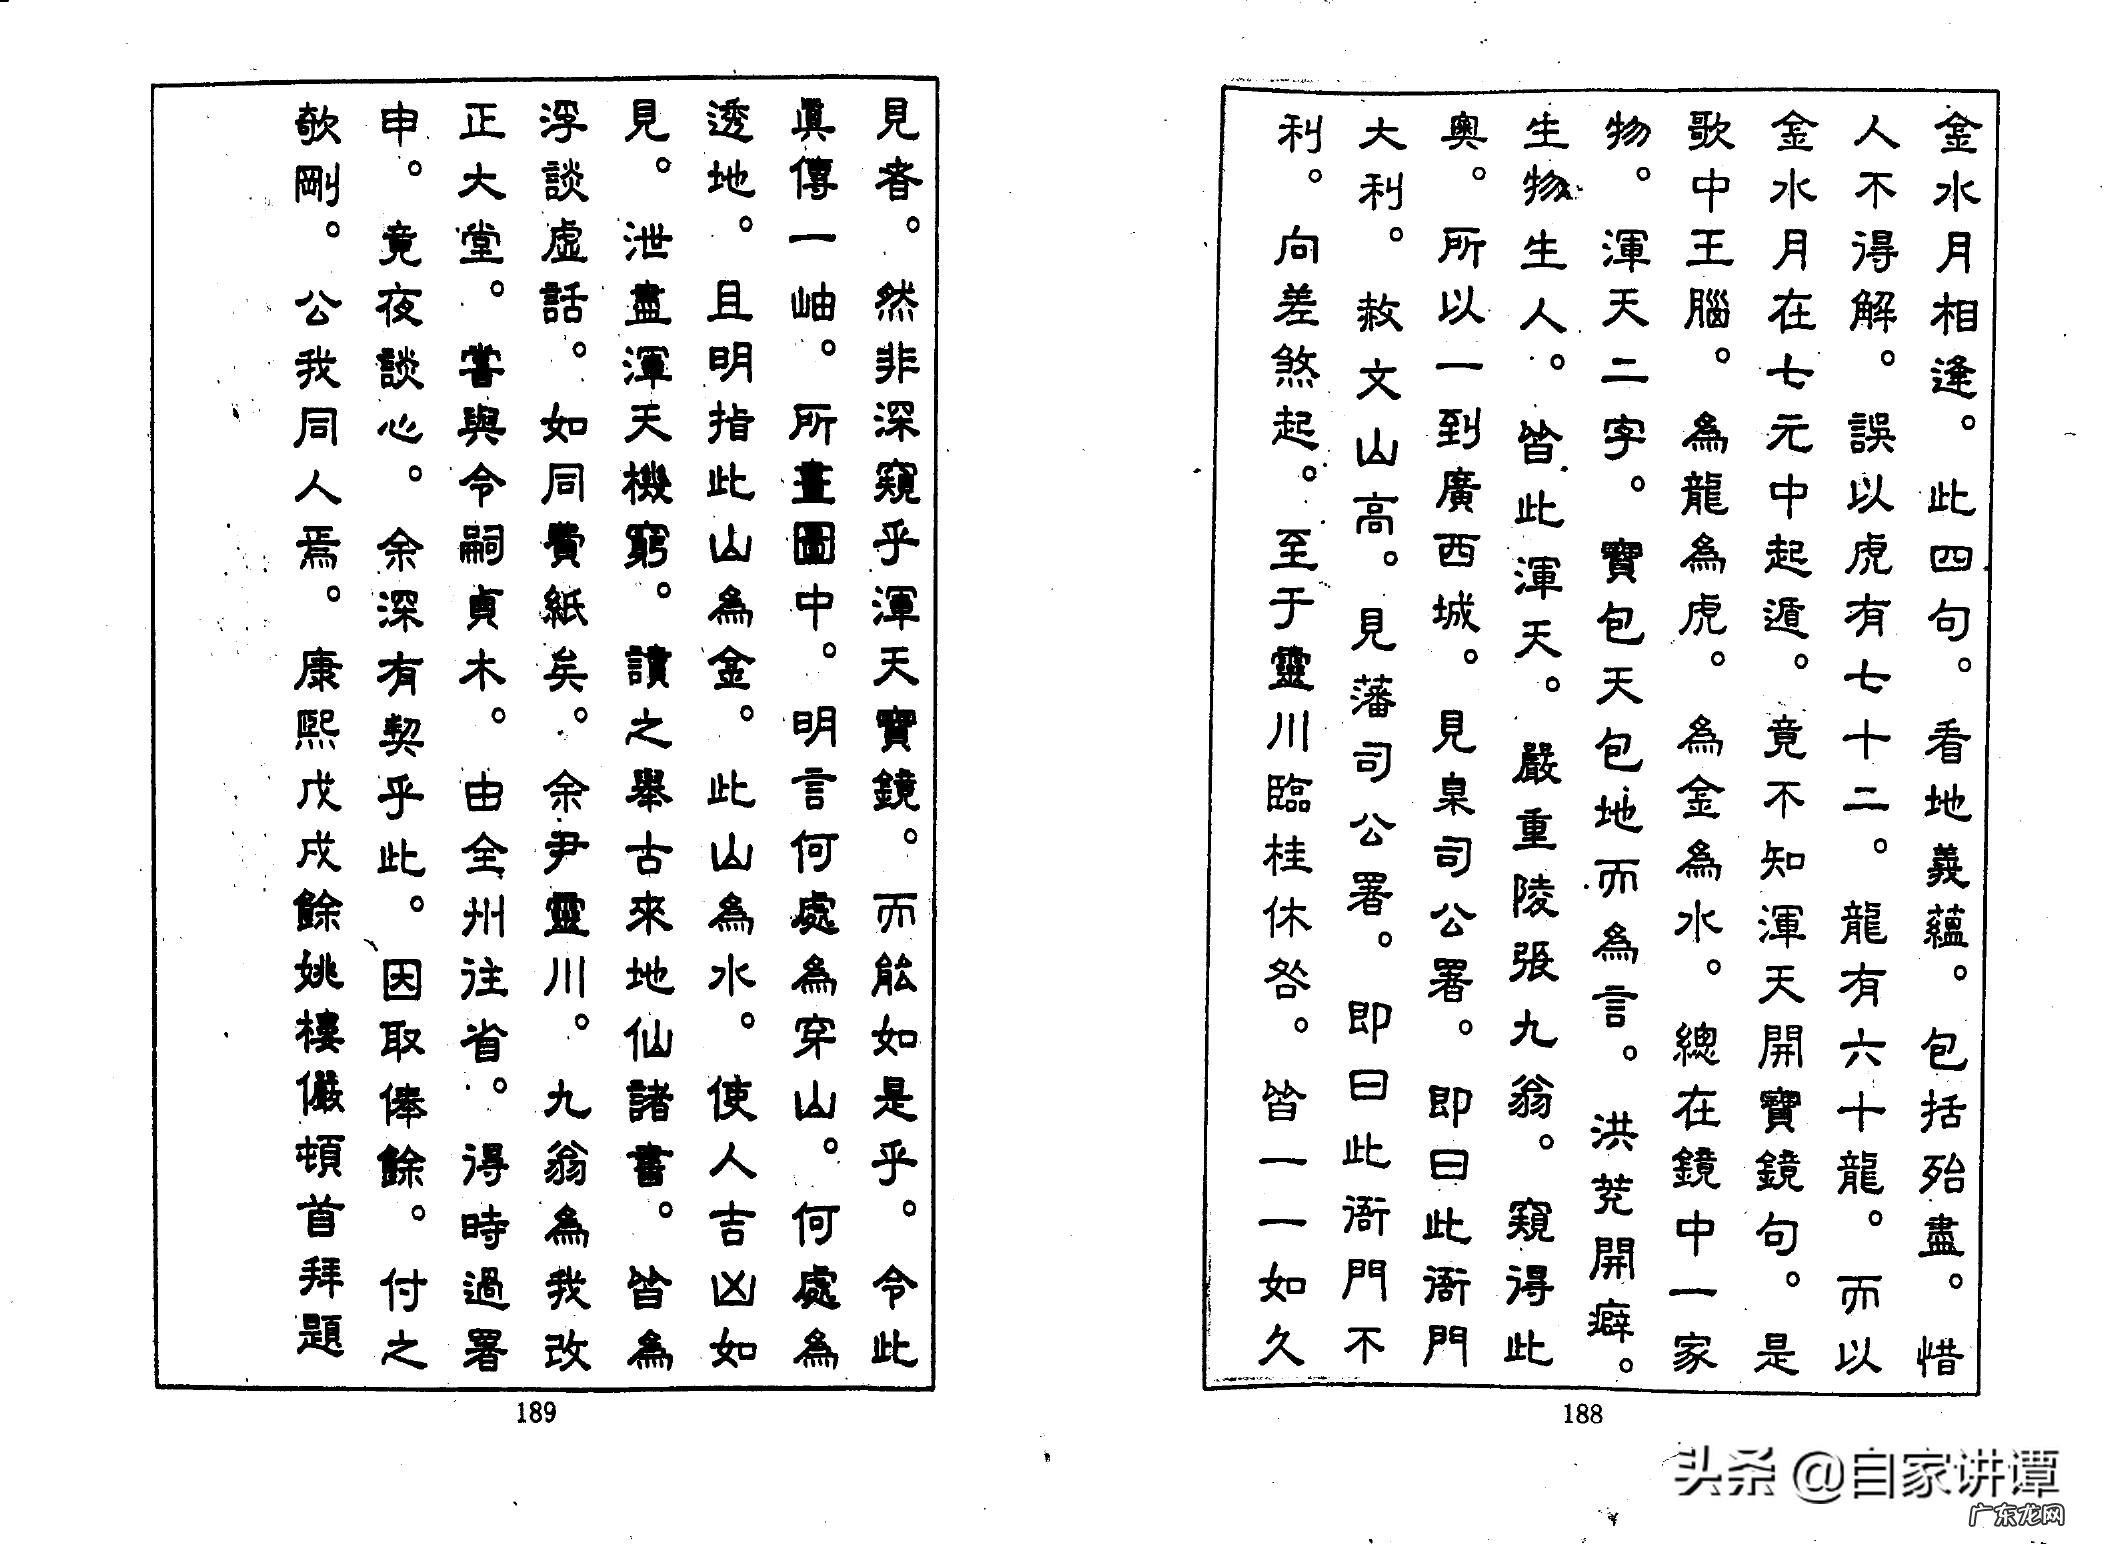 金水月相逢。此四句。看地義蘊。包括殆盡。惜
人不得解。誤以虎有七十二。龍有六十龍。而以
金水月在七元中起遁。竟不知渾天開寶鏡句。是
歌中王腦。為龍為虎。為金為水。總在鏡中一家
物。渾天二字。寶包天包地而為言。洪荒開癖。
生物生人。皆此渾天。嚴重陵張九翁。窺得此
奧。所以一到廣西城。見臬司公署。即曰此衙門
大利。赦文山高。見藩司公署。即曰此衙門不
利。向差煞起。至于靈川臨桂休咎。皆一一如久
188
見者。然非深窺乎渾天寶鏡。而能如是乎。令此
眞傳一岫。所畫圖中。明言何處為穿山。何處為
透地。且明指此山為金。此山為水。使人吉凶如
見。泄盡渾天機窮。讀之舉古來地仙諸書。皆為
浮談虛話。如同費紙矣。余尹靈川。九翁為我改
正大堂。嘗與令嗣貞木。由全州往省。得時過署
申。竟夜談心。余深有契乎此。因取俸餘。付之
欹剛。公我同人焉。康熙戊戌餘姚樓儼頓首拜題
189
头杀 @自家讲谭
广东龙网